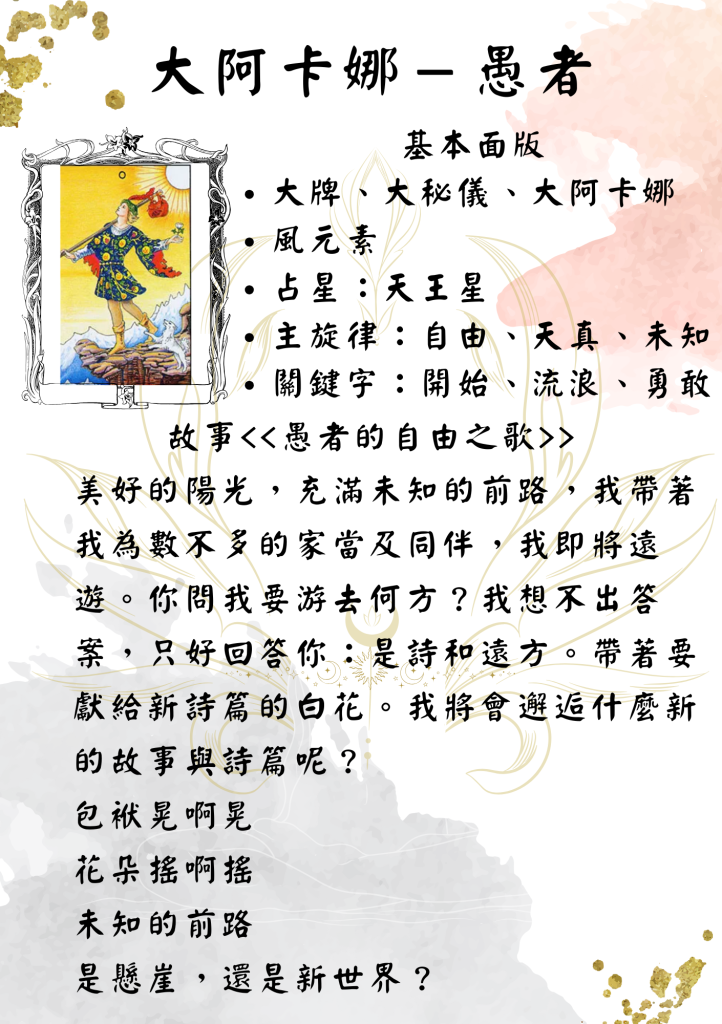 大阿卡娜－愚者
基本面版
• 大牌、大秘儀、大阿卡娜
• 風元素
• 占星：天王星
• 主旋律：自由、天真、未知
• 關鍵字：開始、流浪、勇敢
故事<<愚者的自由之歌>>
美好的陽光，充滿未知的前路，我帶著
我為數不多的家當及同伴，我即將遠
遊。你問我要游去何方？我想不出答
案，只好回答你：是詩和遠方。帶著要
獻給新詩篇的白花。我將會邂逅什麼新
的故事與詩篇呢？
包袱晃啊晃
花朵搖啊搖
未知的前路
是懸崖，還是新世界？